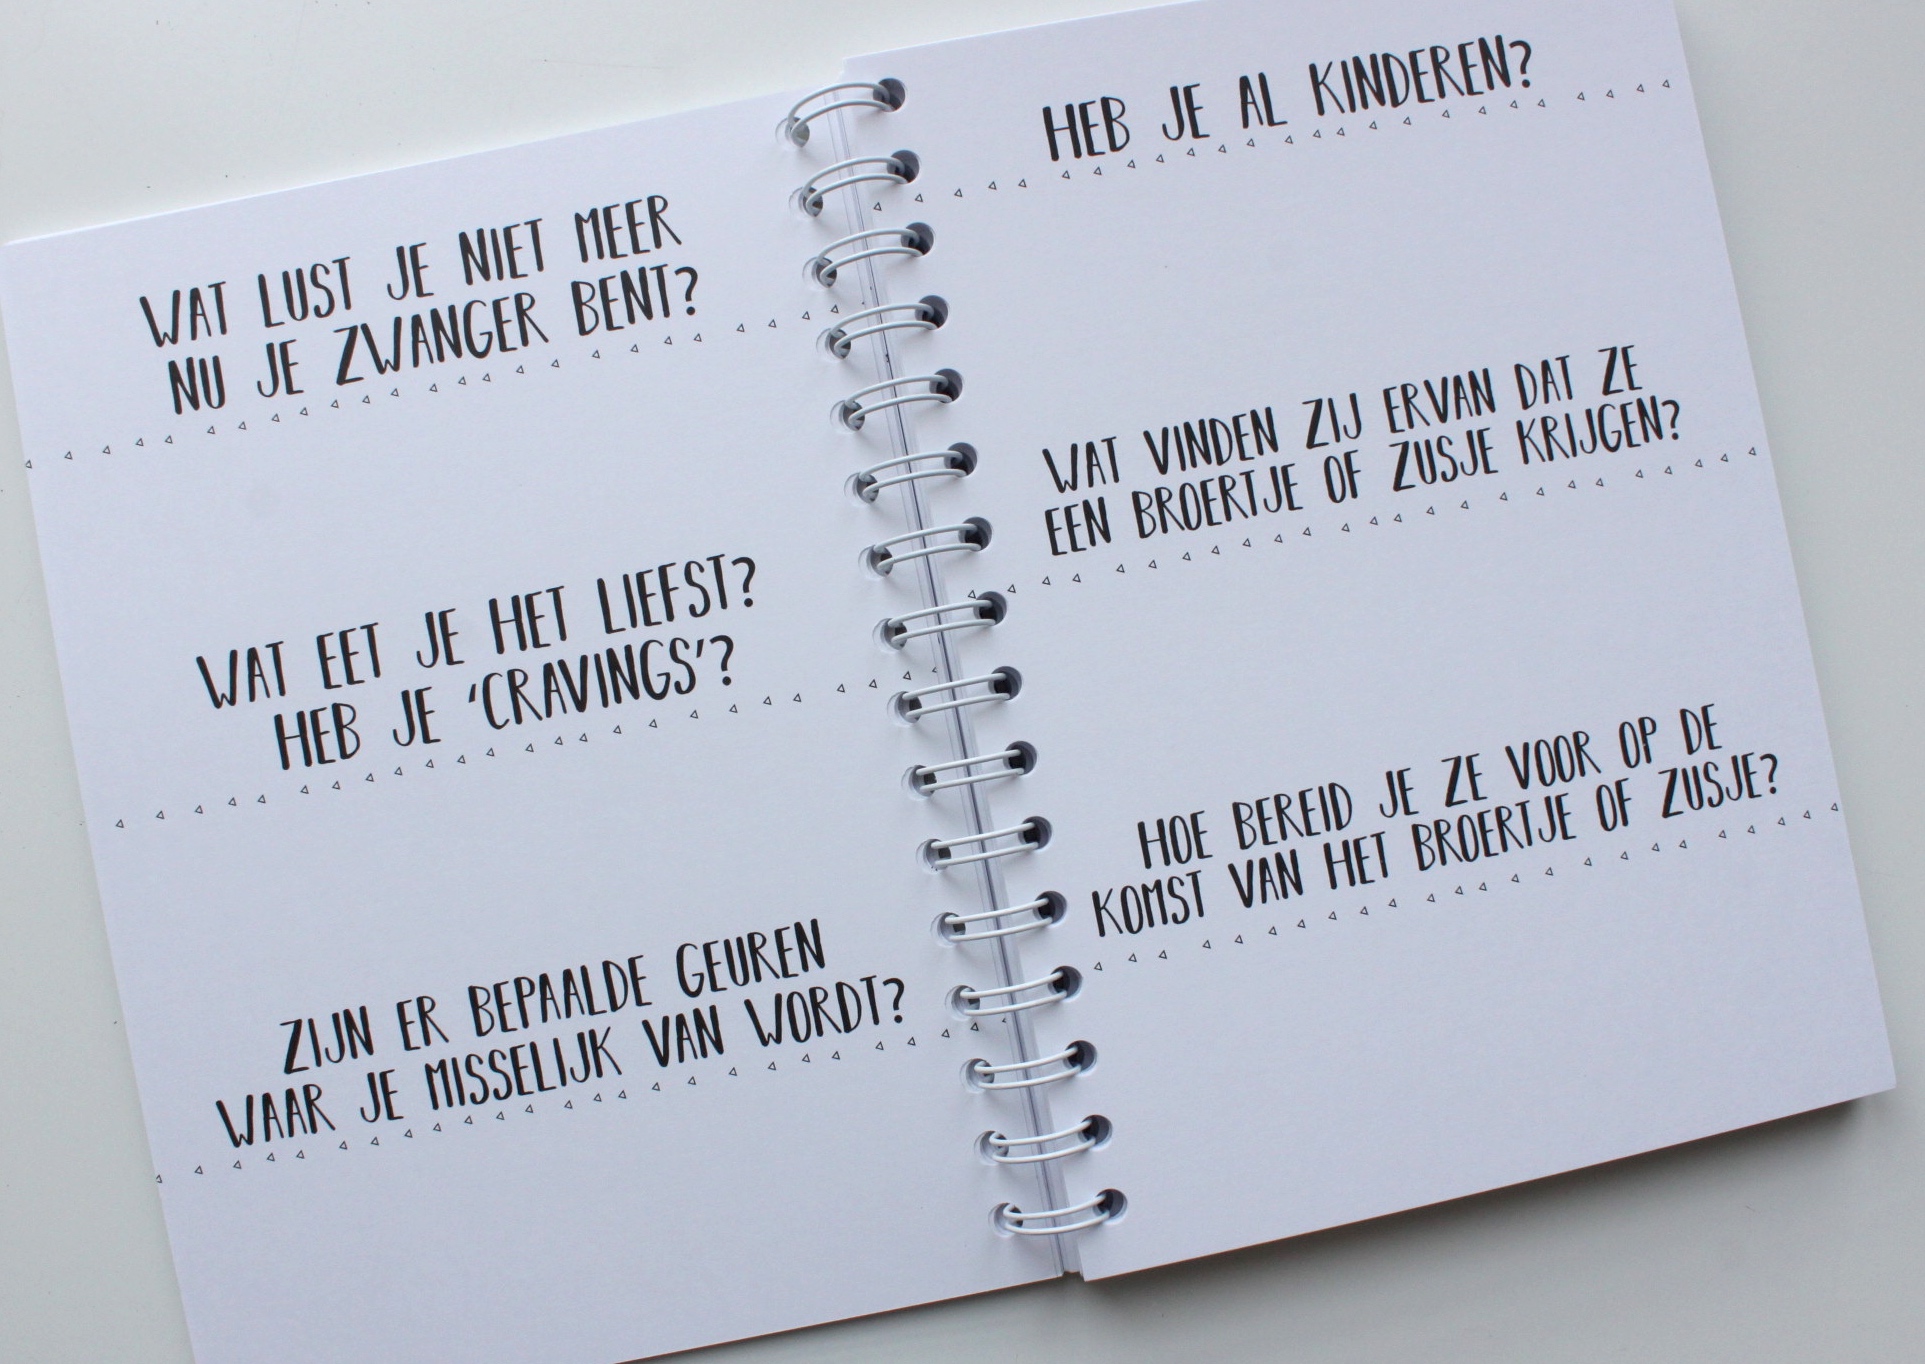 WAT LUST JE NIET MEER
NU JE ZWANGER BENT?
WAT EET JE HET LIEFST?
HEB JE 'CRAVINGS'?
ZIJN ER BEPAALDE GEUREN
WAAR JE MISSELIJK VAN WORDT?
HEB JE AL KINDEREN?
WAT VINDEN ZIJ ERVAN DAT ZE
EEN BROERTJE OF ZUSJE KRIJGEN?
HOE BEREID JE ZE VOOR OP DE
KOMST VAN HET BROERTJE OF ZUSJE?